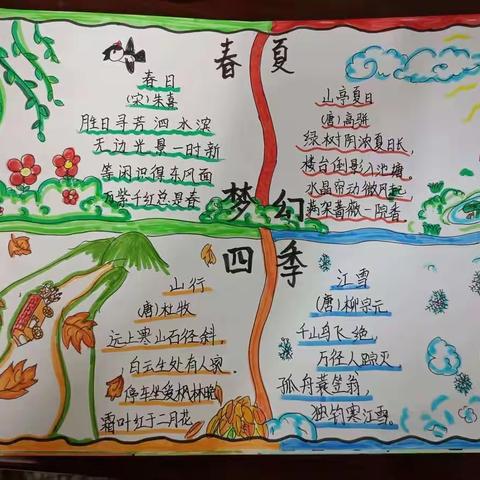 春夏
春日
(宋)朱熹
胜日寻芳泗水滨
无边光景一时新
等闲识得东风面
万紫千红总是春
山亭夏日
(唐)高骈
绿树阴浓夏日长,
楼台倒影入池塘。
水晶帘动微风起
满架蔷薇一院香
梦幻
四季
山行
(唐)杜牧
远上寒山石径斜,
白云生处有人家,
停车坐爱枫林晚,
霜叶红于二月花。
江雪
(唐)柳宗元
千山鸟飞绝,
万径人踪灭,
孤舟蓑笠翁,
独钓寒江雪。